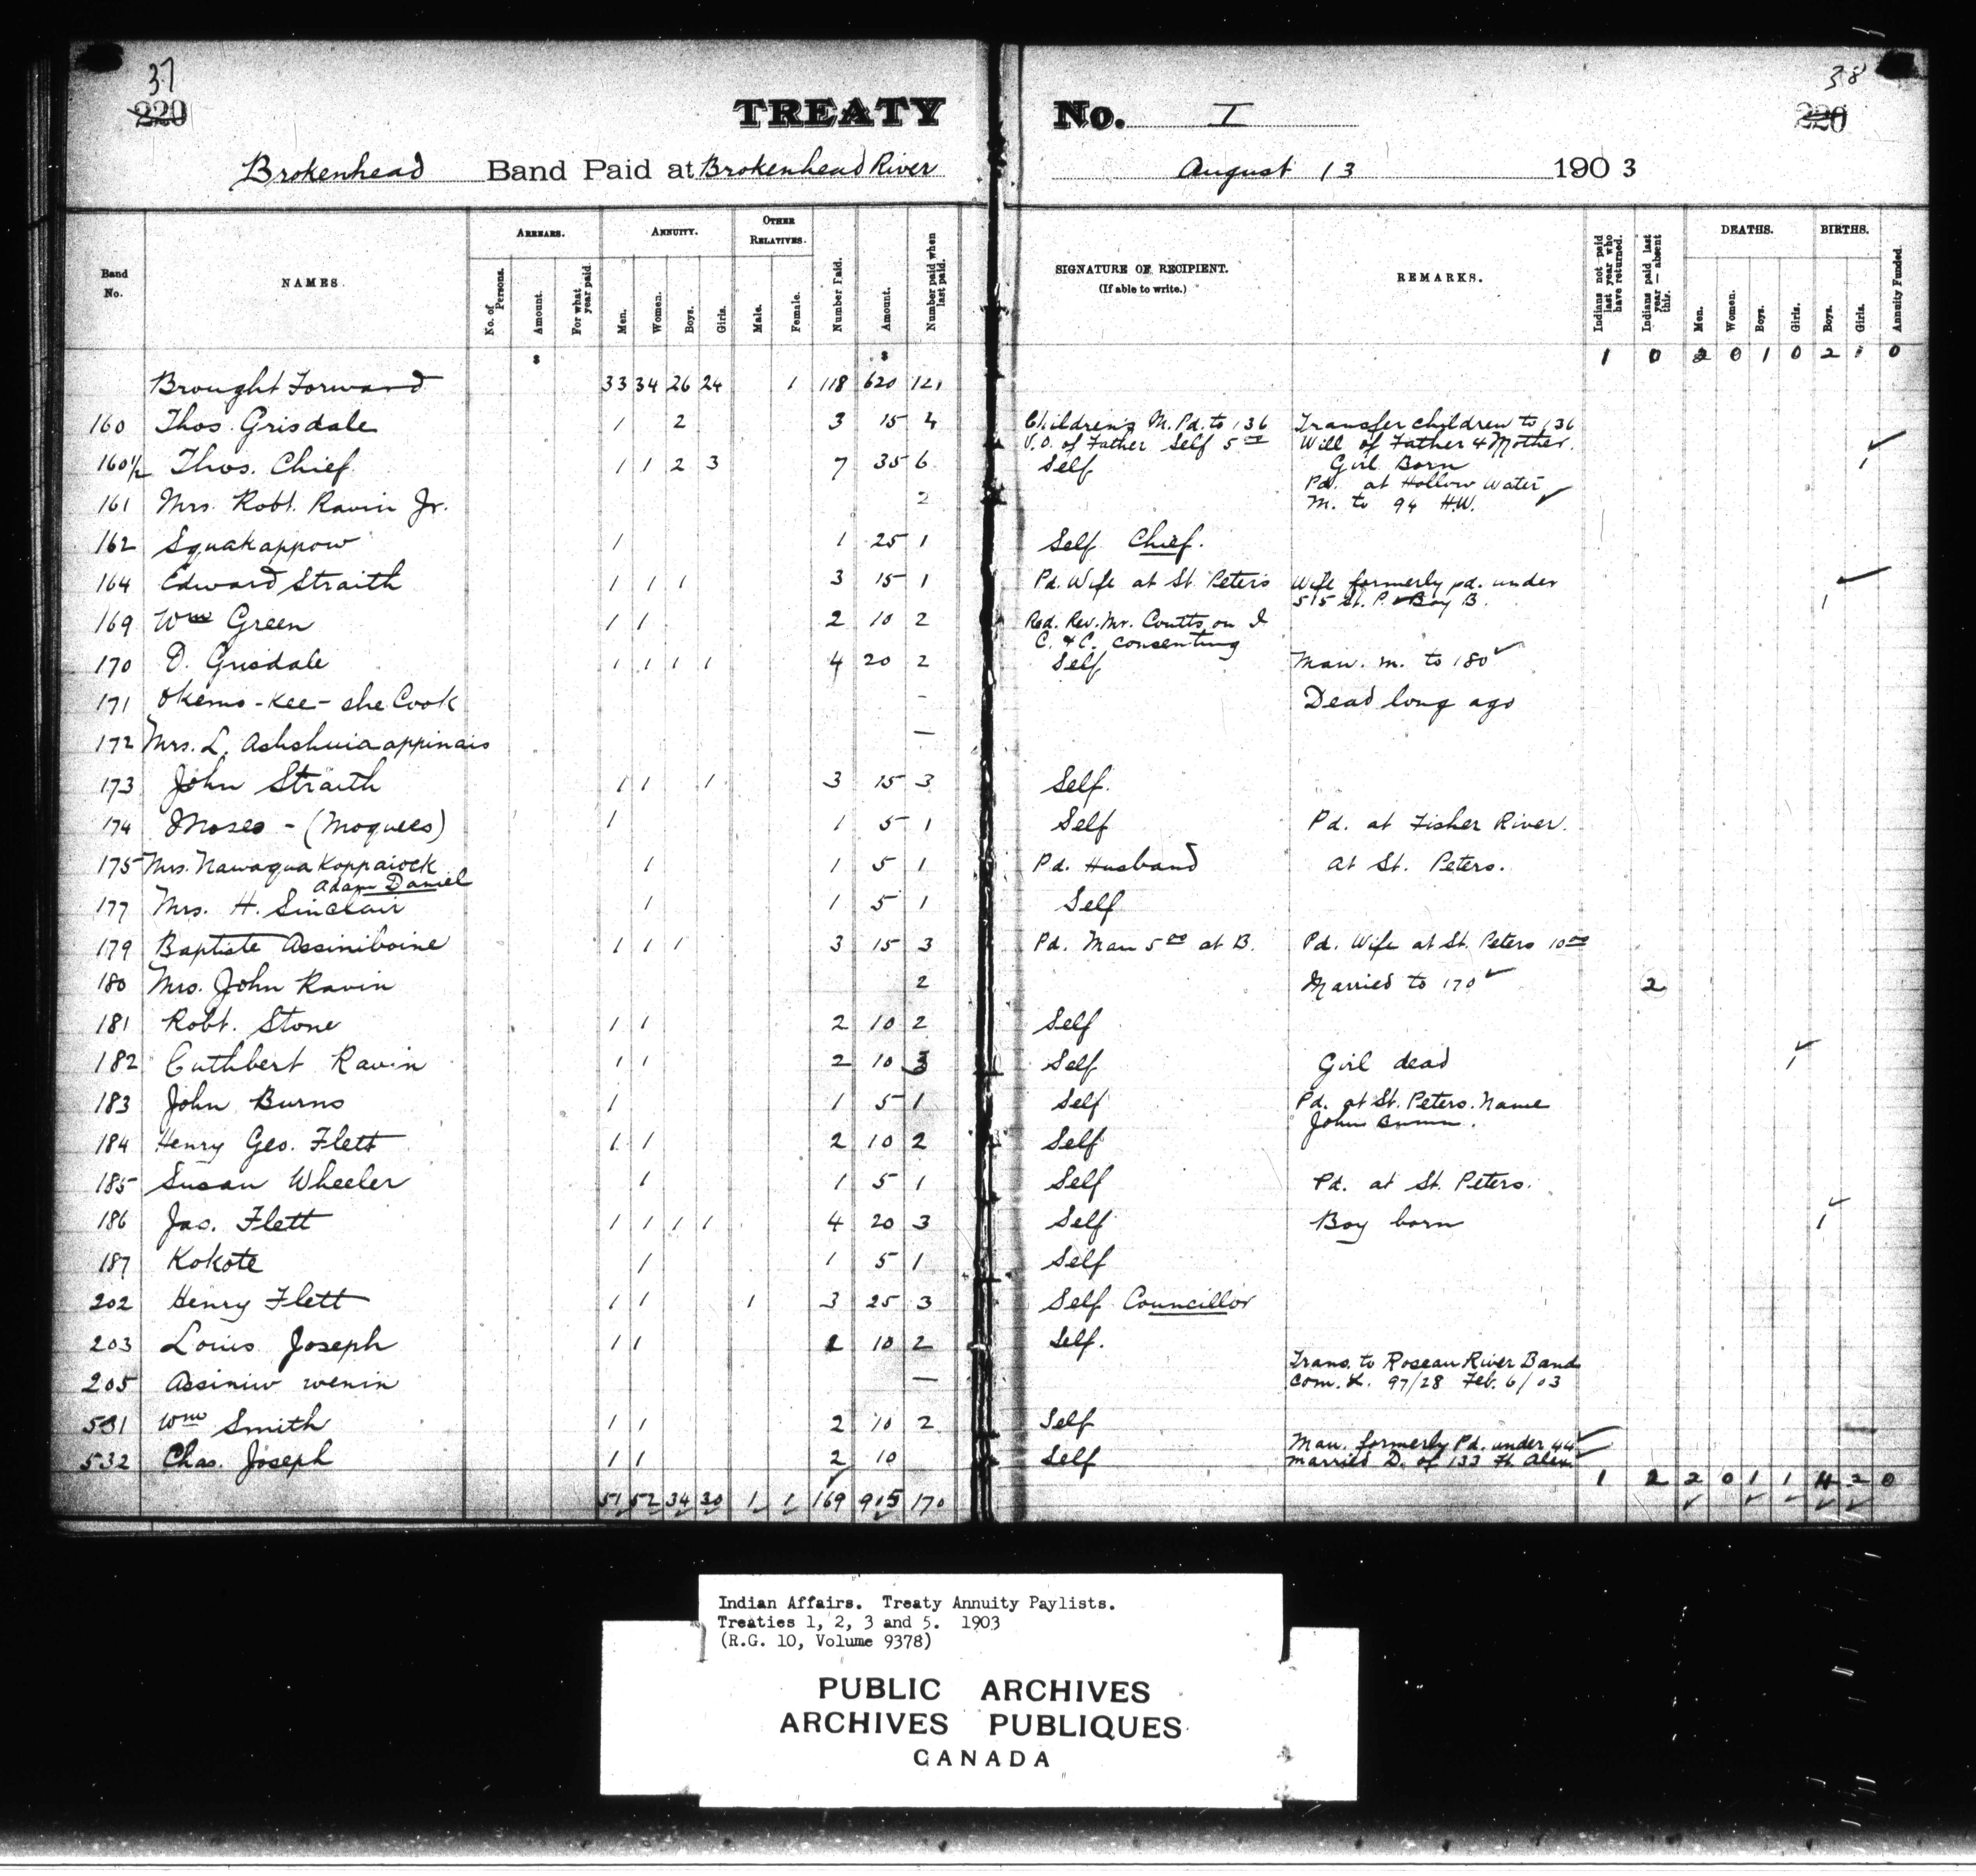 37 38
220 TREATY No. I 220
Brokenhead Band Paid at Brokenhead River August 13 1903
Band No. NAMES. ARREARS. No. of Persons. Amount. For what year paid. ANNUITY. Men. Women. Boys. Girls. OTHER RELATIVES. Male. Female. Number Paid. Amount. Number paid when last paid. SIGNATURE OF RECIPIENT. (If able to write.) REMARKS. Indians not paid last year who have returned. Indians paid last year — absent this. DEATHS. Men. Women. Boys. Girls. BIRTHS. Boys. Girls. Annuity Funded.
$ $ 1 0 2 0 1 0 2 1 0
Brought Forward 33 34 26 24 1 118 620 121
160 Thos. Grisdale 1 2 3 15 4 Children's M. Pd. to 136 Transfer children to 136
V.O. of Father Self 5.00 Will of Father & Mother.
160½ Thos. Chief 1 1 2 3 7 35 6 Self Girl Born 1
161 Mrs. Robt. Ravin Jr. 2 Pd. at Hollow Water
M. to 94 H.W.
162 Squakappow 1 1 25 1 Self Chief.
164 Edward Straith 1 1 1 3 15 1 Pd. Wife at St. Peters Wife formerly pd. under
515 St. P. Boy B. 1
169 Wm Green 1 1 2 10 2 Red. Rev. Mr. Coutts on I
C. & C. consenting
170 D. Grisdale 1 1 1 1 4 20 2 Self Man. m. to 180
171 Okemo-kee-she Cook - Dead long ago
172 Mrs. L. Ashshuiaappinais —
173 John Straith 1 1 1 3 15 3 Self.
174 Moses - (Moquees) 1 1 5 1 Self Pd. at Fisher River.
175 Mrs. Nawaqua Koppaiock 1 1 5 1 Pd. Husband at St. Peters.
Adam Daniel
177 Mrs. H. Sinclair 1 1 5 1 Self
179 Baptiste Assiniboine 1 1 1 3 15 3 Pd. Man 5.00 at B. Pd. Wife at St. Peters 10.00
180 Mrs. John Ravin 2 Married to 170 2
181 Robt. Stone 1 1 2 10 2 Self
182 Cuthbert Ravin 1 1 2 10 3 Self Girl dead 1
183 John Burns 1 1 5 1 Self Pd. at St. Peters. Name
John Bunn.
184 Henry Geo. Flett 1 1 2 10 2 Self
185 Susan Wheeler 1 1 5 1 Self Pd. at St. Peters.
186 Jas. Flett 1 1 1 1 4 20 3 Self Boy born 1
187 Kokote 1 1 5 1 Self
202 Henry Flett 1 1 1 3 25 3 Self Councillor
203 Louis Joseph 1 1 2 10 2 Self.
Trans. to Roseau River Band
205 Assiniw wenin — Com. L. 97/28 Feb. 6/03
531 Wm Smith 1 1 2 10 2 Self
Man. formerly Pd. under 44
532 Chas. Joseph 1 1 2 10 Self Married D. of 133 Ft. Alex.
1 2 2 0 1 1 4 2 0
51 52 34 30 1 1 169 915 170
Indian Affairs. Treaty Annuity Paylists.
Treaties 1, 2, 3 and 5. 1903
(R.G. 10, Volume 9378)
PUBLIC ARCHIVES
ARCHIVES PUBLIQUES
CANADA